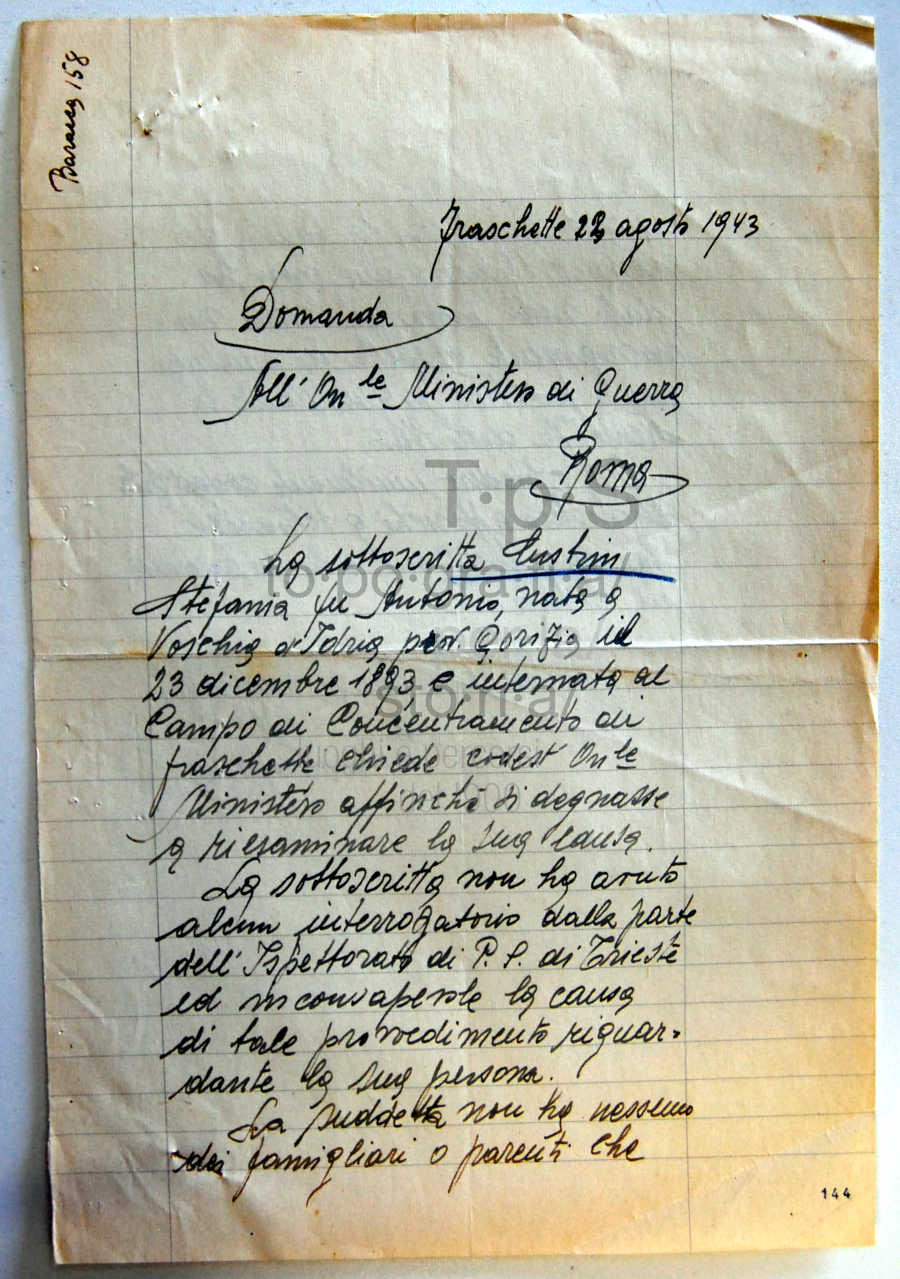 Baracca 158
Fraschette 22 agosto 1943
Domanda
All' On le Ministero di Guerra
Roma
T·p·S
La sottoscritta
Stefania fu Antonio, nata a
Voschia d'Idria prov. Gorizia il
23 dicembre 1893 e internata al
Campo di Concentramento di
fraschette chiede codest On le
Ministero affinchè si degnasse
a riesaminare la sua causa.
La sottoscritta non ha avuto
alcun interrogatorio dalla parte
dell' Ispettorato di P. S. di Trieste
ed inconsapevole la causa
di tale provvedimento riguar=
dante la sua persona.
La suddetta non ha nessuno
dei famigliari o parenti che
144